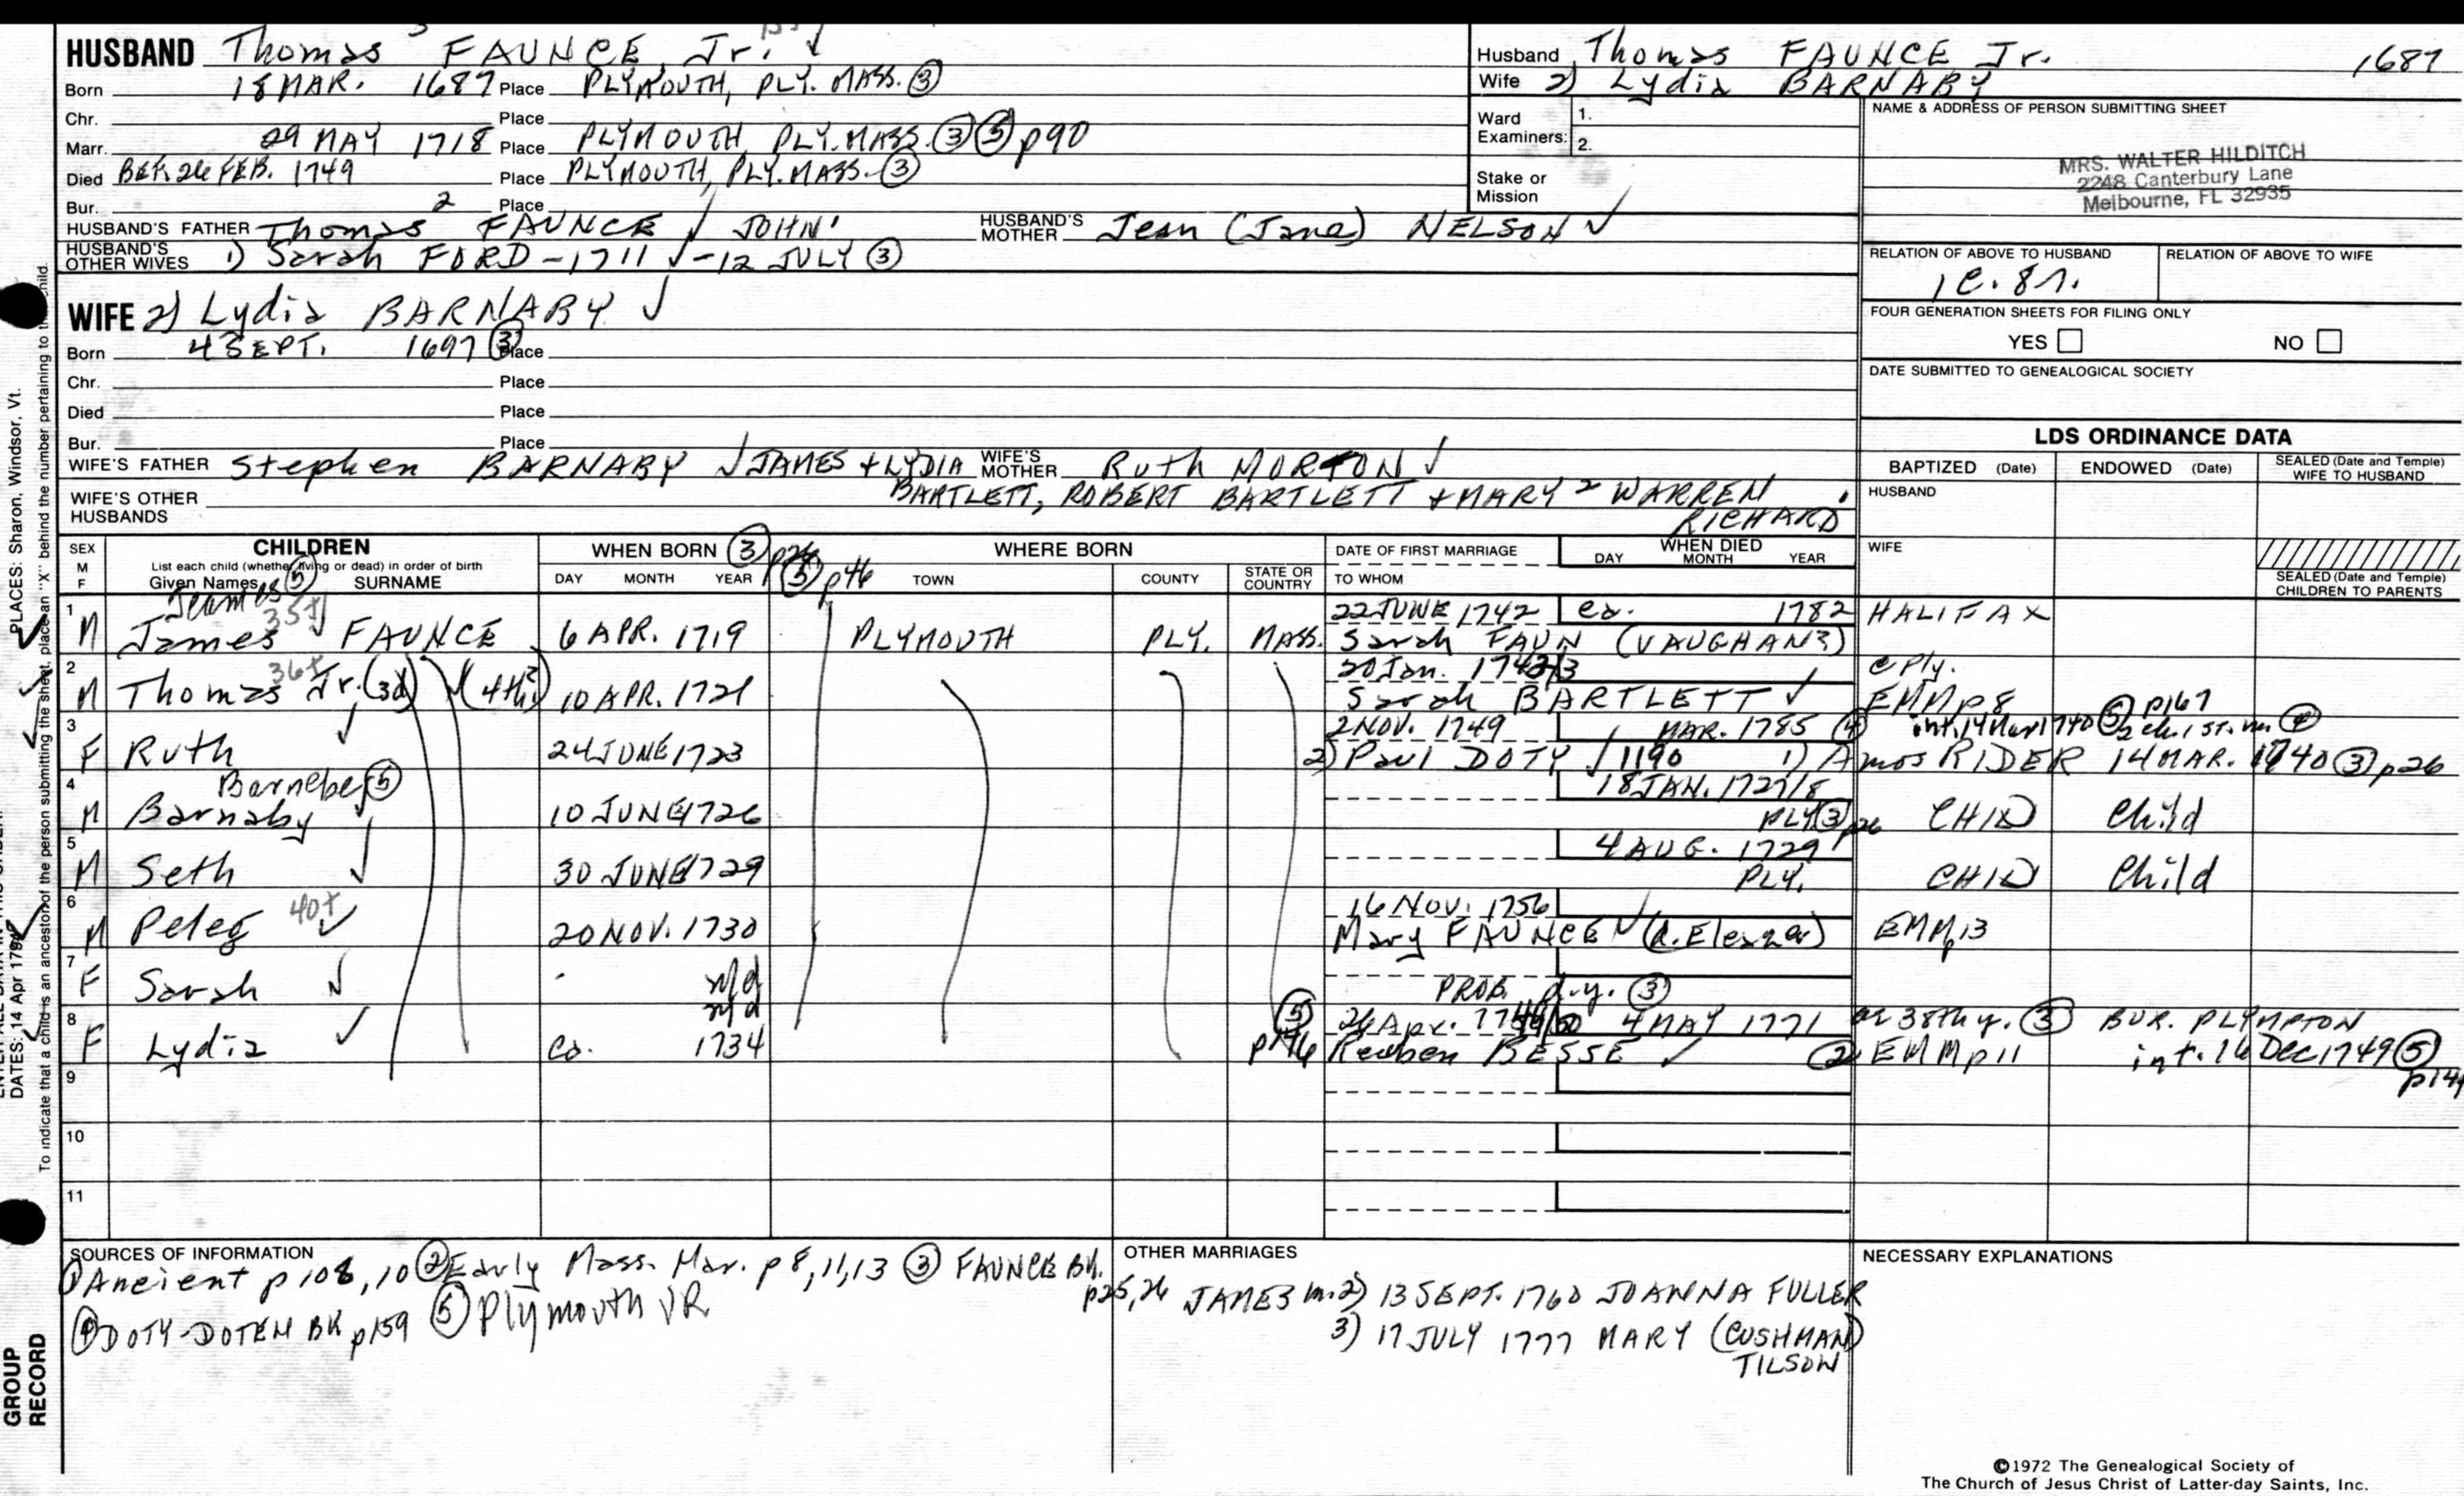 HUSBAND Thomas 3 FAUNCE, Jr.
Born 18 MAR. 1687 Place PLYMOUTH, PLY. MASS. ③
Chr. Place
Marr. 29 MAY 1718 Place PLYMOUTH, PLY. MASS. ③ ⑤ p90
Died BEF. 26 FEB. 1749 Place PLYMOUTH, PLY. MASS. ③
Bur. Place
HUSBAND'S FATHER Thomas 2 FAUNCE ✓ JOHN' HUSBAND'S MOTHER Jean (Jane) NELSON ✓
HUSBAND'S OTHER WIVES 1) Sarah FORD - 1711 ✓ - 12 JULY ③
WIFE 2) Lydia BARNABY ✓
Born 4 SEPT. 1697 ③ Place
Chr. Place
Died Place
Bur. Place
WIFE'S FATHER Stephen BARNABY ✓ JAMES + LYDIA WIFE'S MOTHER Ruth MORTON ✓
BARTLETT, ROBERT BARTLETT + MARY 2 WARREN,
WIFE'S OTHER HUSBANDS
RICHARD
Husband Thomas FAUNCE Jr. 1687
Wife 2) Lydia BARNABY
Ward Examiners: 1.
2.
Stake or Mission
NAME & ADDRESS OF PERSON SUBMITTING SHEET
MRS. WALTER HILDITCH
2248 Canterbury Lane
Melbourne, FL 32935
RELATION OF ABOVE TO HUSBAND RELATION OF ABOVE TO WIFE
FOUR GENERATION SHEETS FOR FILING ONLY
YES NO
DATE SUBMITTED TO GENEALOGICAL SOCIETY
LDS ORDINANCE DATA
BAPTIZED (Date) ENDOWED (Date) SEALED (Date and Temple) WIFE TO HUSBAND
HUSBAND
WIFE
SEALED (Date and Temple) CHILDREN TO PARENTS
SEX M F CHILDREN List each child (whether living or dead) in order of birth Given Names SURNAME
WHEN BORN ③ p26 DAY MONTH YEAR ⑤ p46
WHERE BORN TOWN COUNTY STATE OR COUNTRY
DATE OF FIRST MARRIAGE TO WHOM
WHEN DIED DAY MONTH YEAR
Jeames ⑤ 35+
22 JUNE 1742 ca. 1782 HALIFAX
1 M James FAUNCE 6 APR. 1719 PLYMOUTH PLY. MASS. Sarah FAUN (VAUGHAN3)
36+ 20 Jan. 1742/3 @ Ply.
2 M Thomas Jr. (3d) (4th?) 10 APR. 1721 Sarah BARTLETT ✓ EMM p8
2 NOV. 1749 MAR. 1785 ④ int. 14 Mar 1740 ⑤ p167
3 F Ruth 24 JUNE 1723 2) Paul DOTY ✓ 1190 1) Amos RIDER 14 MAR. 1740 ③ p26
Barnebe ⑤ 18 JAN. 1727/8
4 M Barnaby 10 JUNE 1726 PLY ③ p26 CHILD Child
4 AUG. 1729
5 M Seth 30 JUNE 1729 PLY. CHILD Child
40+ 16 NOV. 1756
6 M Peleg 20 NOV. 1730 Mary FAUNCE ✓ (d. Eleazar) EMM p13
7 F Sarah n/d
PROB. d.y. ③
n/d ⑤ 26 Apr. 1749/50 4 MAY 1771 ae 38th y. ③ BUR. PLYMPTON
8 F Lydia ca. 1734 p146 Reuben BESSE ✓ ② EMM p11 int. 16 Dec 1749 ⑤
9
10
11
SOURCES OF INFORMATION
① Ancient p 108, 10 ② Early Mass. Mar. p 8, 11, 13 ③ FAUNCE BK. p25, 26
④ DOTY-DOTEN BK p159 ⑤ Plymouth VR
OTHER MARRIAGES
JAMES m. 2) 13 SEPT. 1760 JOANNA FULLER
3) 17 JULY 1777 MARY (CUSHMAN) TILSON
NECESSARY EXPLANATIONS
©1972 The Genealogical Society of
The Church of Jesus Christ of Latter-day Saints, Inc.
PLACES: Sharon, Windsor, Vt.
DATES: 14 Apr 1794
To indicate that a child is an ancestor of the person submitting the sheet, place an "X" behind the number pertaining to the child.
GROUP RECORD